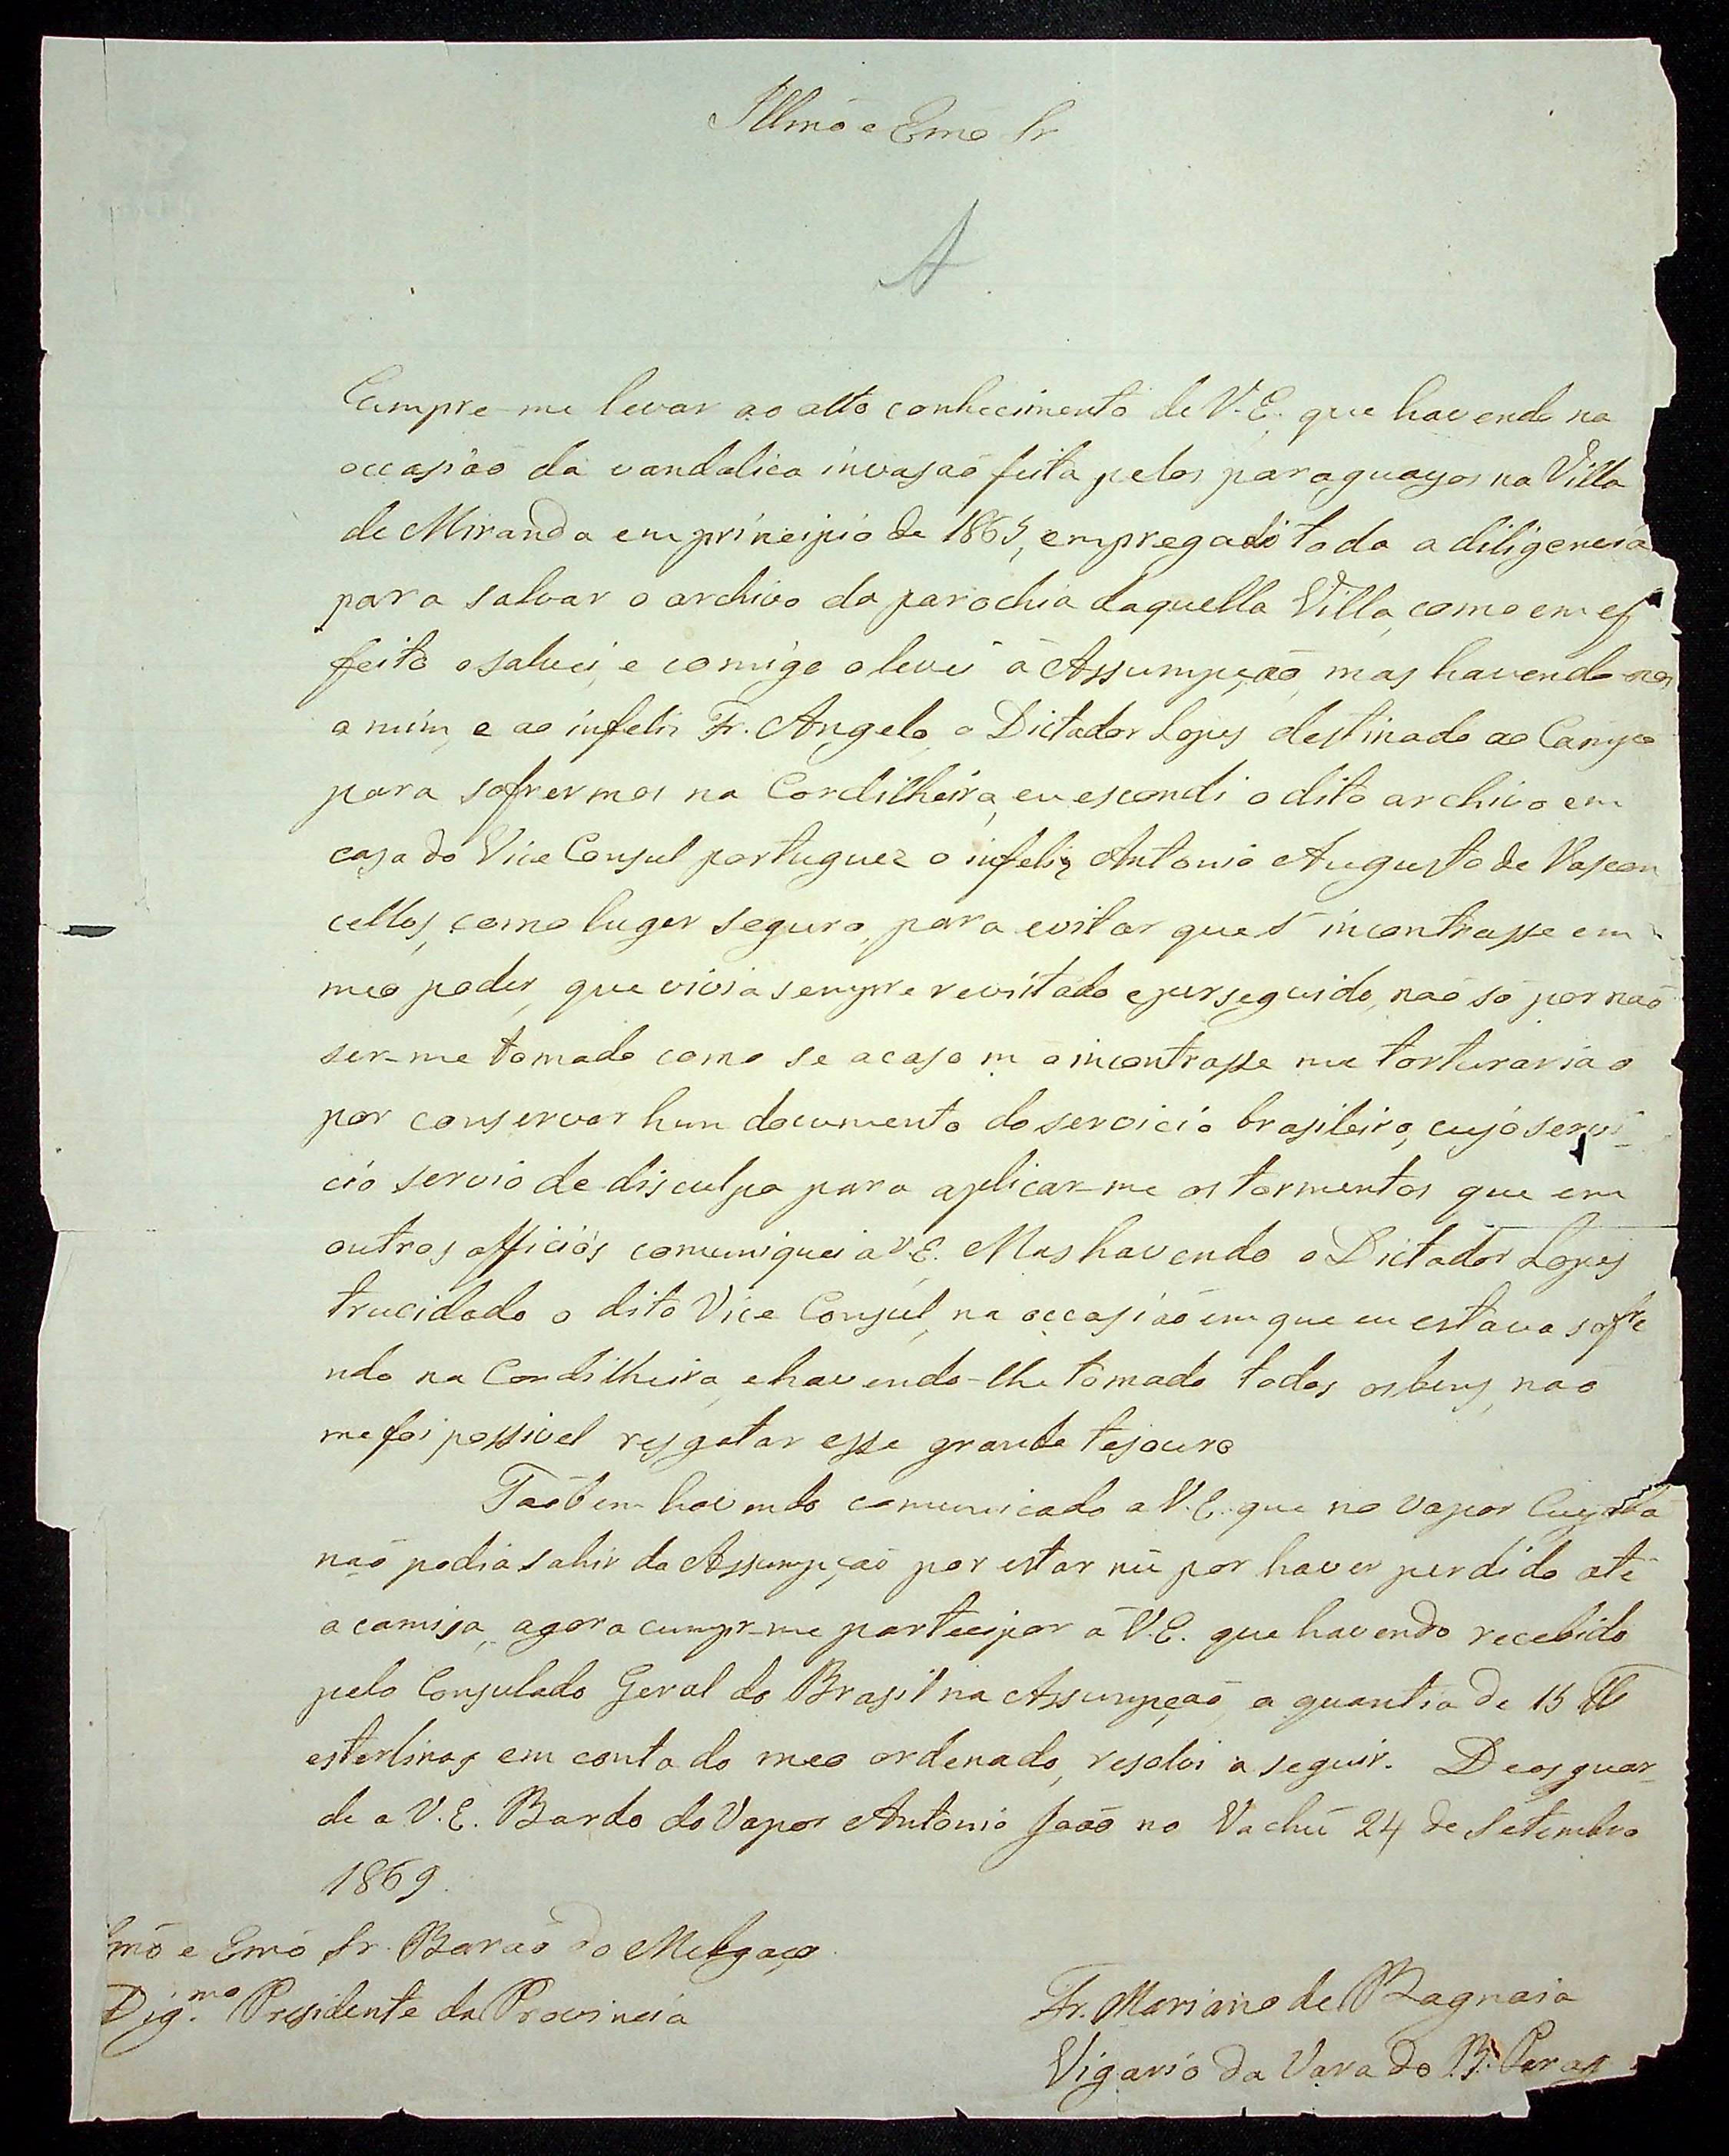 Illmõ e Emõ Sr
A
Cumpre-me levar ao alto conhecimento de V. E. que havendo na
occasião da vandalica invasaõ feita pelos paraguayos na Villa
de Miranda em principio de 1865, empregado toda a diligencia
para salvar o archivo da parochia daquella Villa, como em ef
feito o salvei, e comigo o levei à Assumpção, mas havendo-nos
a mim, e ao infelis Fr. Angelo, o Dictador Lopes destinado ao Campo
para sofrermos na Cordilheira, eu escondi o dito archivo em
casa do Vice Consul portuguez o infeliz Antonio Augusto de Vascon
cellos, como lugar seguro, para evitar que s' incontrasse em
meo poder, que vivia sempre revistado e perseguido, naõ só por naõ
ser-me tomado como se acaso m o incontrasse me torturariaõ
por conservar hum documento do servicio brasileiro, cujo servi-
cio servio de disculpa para aplicar-me os tormentos que em
outros officios comuniquei a V. E. Mas havendo o Dictador Lopes
trucidado o dito Vice Consul, na occasiaõ em que eu estava sofre
ndo na Cordilheira, e havendo-lhe tomado todos os bens, naõ
me foi possivel resgatar esse grande tesouro
Taõbem havendo comunicado a V. E. que no vapor Cuyabá
naõ podia sahir da Assumpçaõ por estar nú por haver perdido até
a camisa, agora cumpr-me partecipar a V. E. que havendo recebido
pelo Consulado Geral do Brasil na Assumpçaõ a quantia de 15 ₶
esterlinas em conta do meo ordenado, resolvi a seguir. Deos guar-
de a V. E. Bordo do Vapor Antonio Joaõ no Vachú 24 de Setembro
1869.
lmõ e Emõ Sr. Baraõ do Melgaço.
Dig.mo Presidente da Provincia
Fr. Mariano de Bagnaia
Vigario da Vara do B. Parag